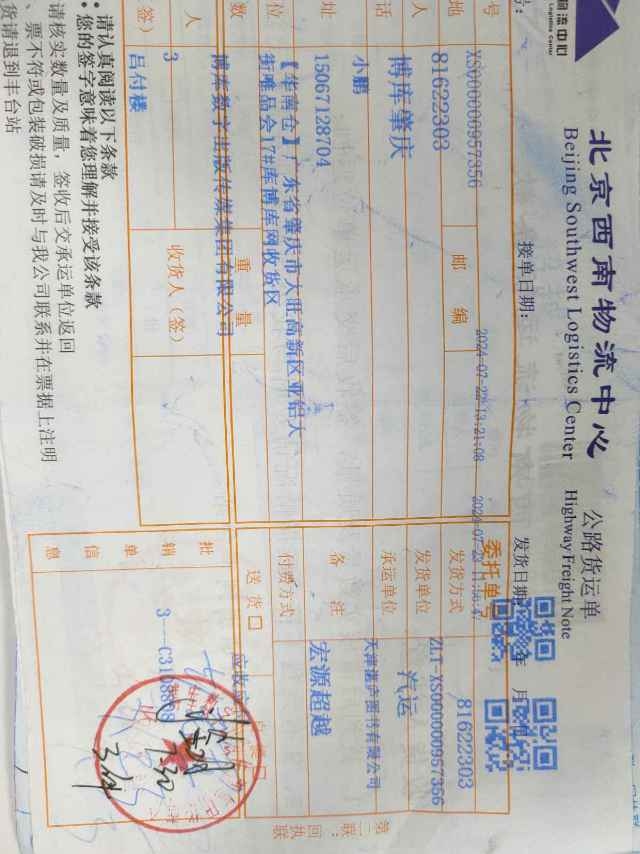 物流中心
Logistics Center
北京西南物流中心 公路货运单
Beijing Southwest Logistics Center Highway Freight Note
号:
接单日期: 2024-07-22 13:21:08
发货日期 年 月
号 XS0000000957356 邮编
地 81622303
人 博库肇庆
话 小鹏
15067128704
址 【华南仓】广东省肇庆市大旺高新区亚铝大
街唯品会17#库博库网收货区
位 博库数字出版传媒集团有限公司
数 3 重量
人
签) 吕付楼 收货人(签)
委托单号 81622303
ZLT-XS0000000957356
发货方式 汽运
发货单位 天津湛庐图书有限公司
承运单位 宏源超越
备注
付费方式
送货□
批销单信息 3---C3108808
3件
第二联:回执联
• 请认真阅读以下条款
• 您的签字意味着您理解并接受该条款
请核实数量及质量,签收后交承运单位返回
、票不符或包装破损请及时与我公司联系并在票据上注明
货请退到丰台站